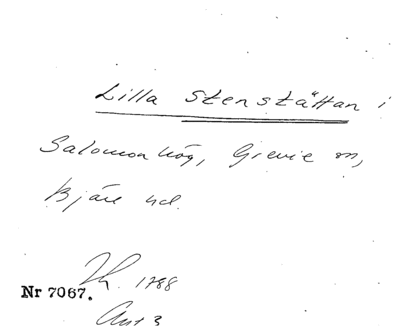 Lilla Stenstättan i
Salomonhög, Grevie sn,
Bjäre hd.
Th. 1788
Nr 7067.
Ant 3